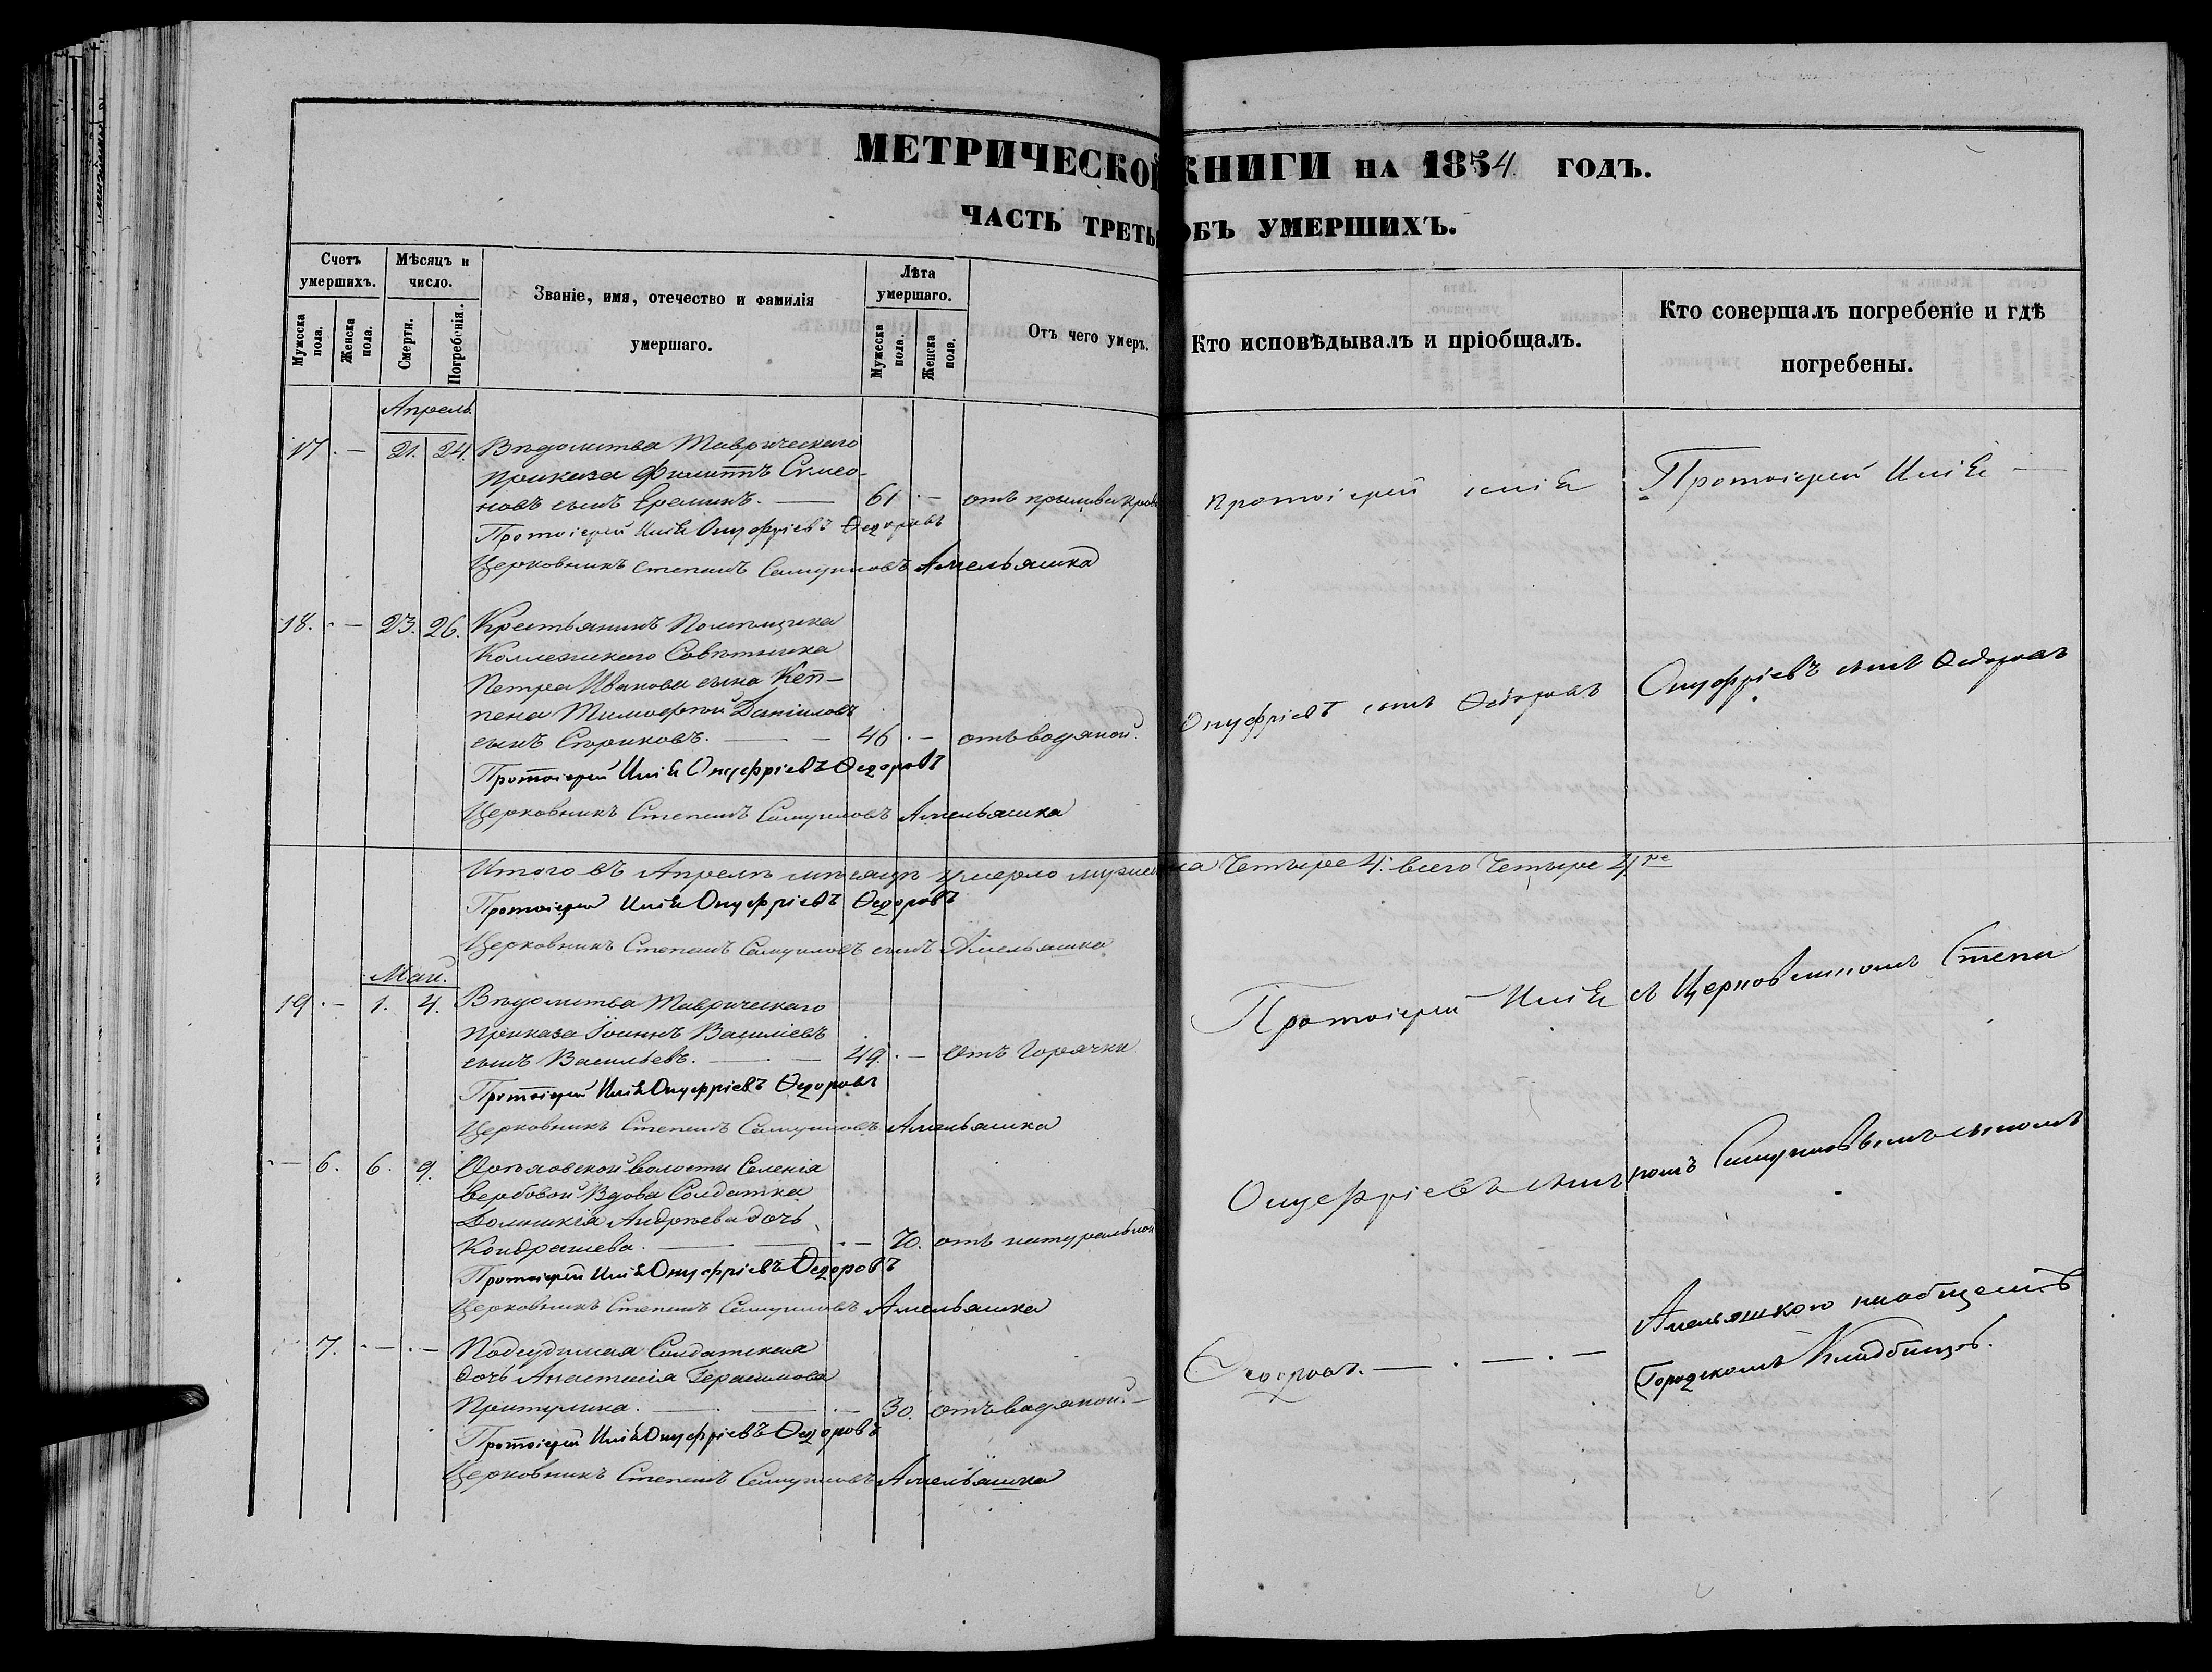 МЕТРИЧЕСКОЙ КНИГИ НА 1854 ГОДЪ.
ЧАСТЬ ТРЕТЬЯ ОБЪ УМЕРШИХЪ.
Счетъ умершихъ.
Мужеска пола.
Женска пола.
Мѣсяцъ и число.
Смерти.
Погребенія.
Званіе, имя, отечество и фамилія умершаго.
Лѣта умершаго.
Мужеска пола.
Женска пола.
Отъ чего умеръ.
Кто исповѣдывалъ и пріобщалъ.
Кто совершалъ погребеніе и гдѣ погребены.
Апрель
17 . — 21. 24. Вѣдомства Таврическаго
приказа Филиппъ Симео-
новъ сынъ Ереминъ. — 61 . — отъ прилива крови
Протоіерей Илія Онуфріевъ Ѳедоровъ
Церковникъ Степанъ Самуиловъ Амельяшко
18. . — 23. 26. Крестьянинъ Помѣщика
Коллежскаго Совѣтника
Петра Иванова сына Кеп-
пена Тимофей Даніиловъ
сынъ Стариковъ. — 46 . — отъ водяной.
Протоіерей Илія Онуфріевъ Ѳедоровъ
Церковникъ Степанъ Самуиловъ Амельяшко
Итого въ Апрелѣ мѣсяцѣ умерло мужеска Четыре 4. всего Четыре 4ре
Протоіерей Илія Онуфріевъ Ѳедоровъ
Церковникъ Степанъ Самуиловъ сынъ Амельяшко
Май.
19 . — 1. 4. Вѣдомства Таврическаго
приказа Іоаннъ Василіевъ
сынъ Васильевъ. — 49. . — Отъ Горячки
Протоіерей Илія Онуфріевъ Ѳедоровъ
Церковникъ Степанъ Самуиловъ Амельяшко
— 6. 6. 9. волости Селенія
Вербовой Вдова Солдатка
Домникія Андреева дочь
Кондрашева. — . — 70. отъ натуральной
Протоіерей Илія Онуфріевъ Ѳедоровъ
Церковникъ Степанъ Самуиловъ Амельяшко
7. . — . — Подсудимая Солдатская
дочь Анастасія Герасимова
Притулина. — . — 30. отъ водяной. —
Протоіерей Илія Онуфріевъ Ѳедоровъ
Церковникъ Степанъ Самуиловъ Амельяшко
протоіерей Илія
Онуфріевъ сынъ Ѳедоровъ
Протоіерей Илія
Онуфріевъ сынъ
Ѳедоровъ. — . — . —
Протоіерей Илія —
Онуфріевъ сынъ Ѳедоровъ
съ Церковникомъ Степа
номъ Самуиловымъ сыномъ
Амельяшкою на общемъ
Городскомъ Кладбищѣ.